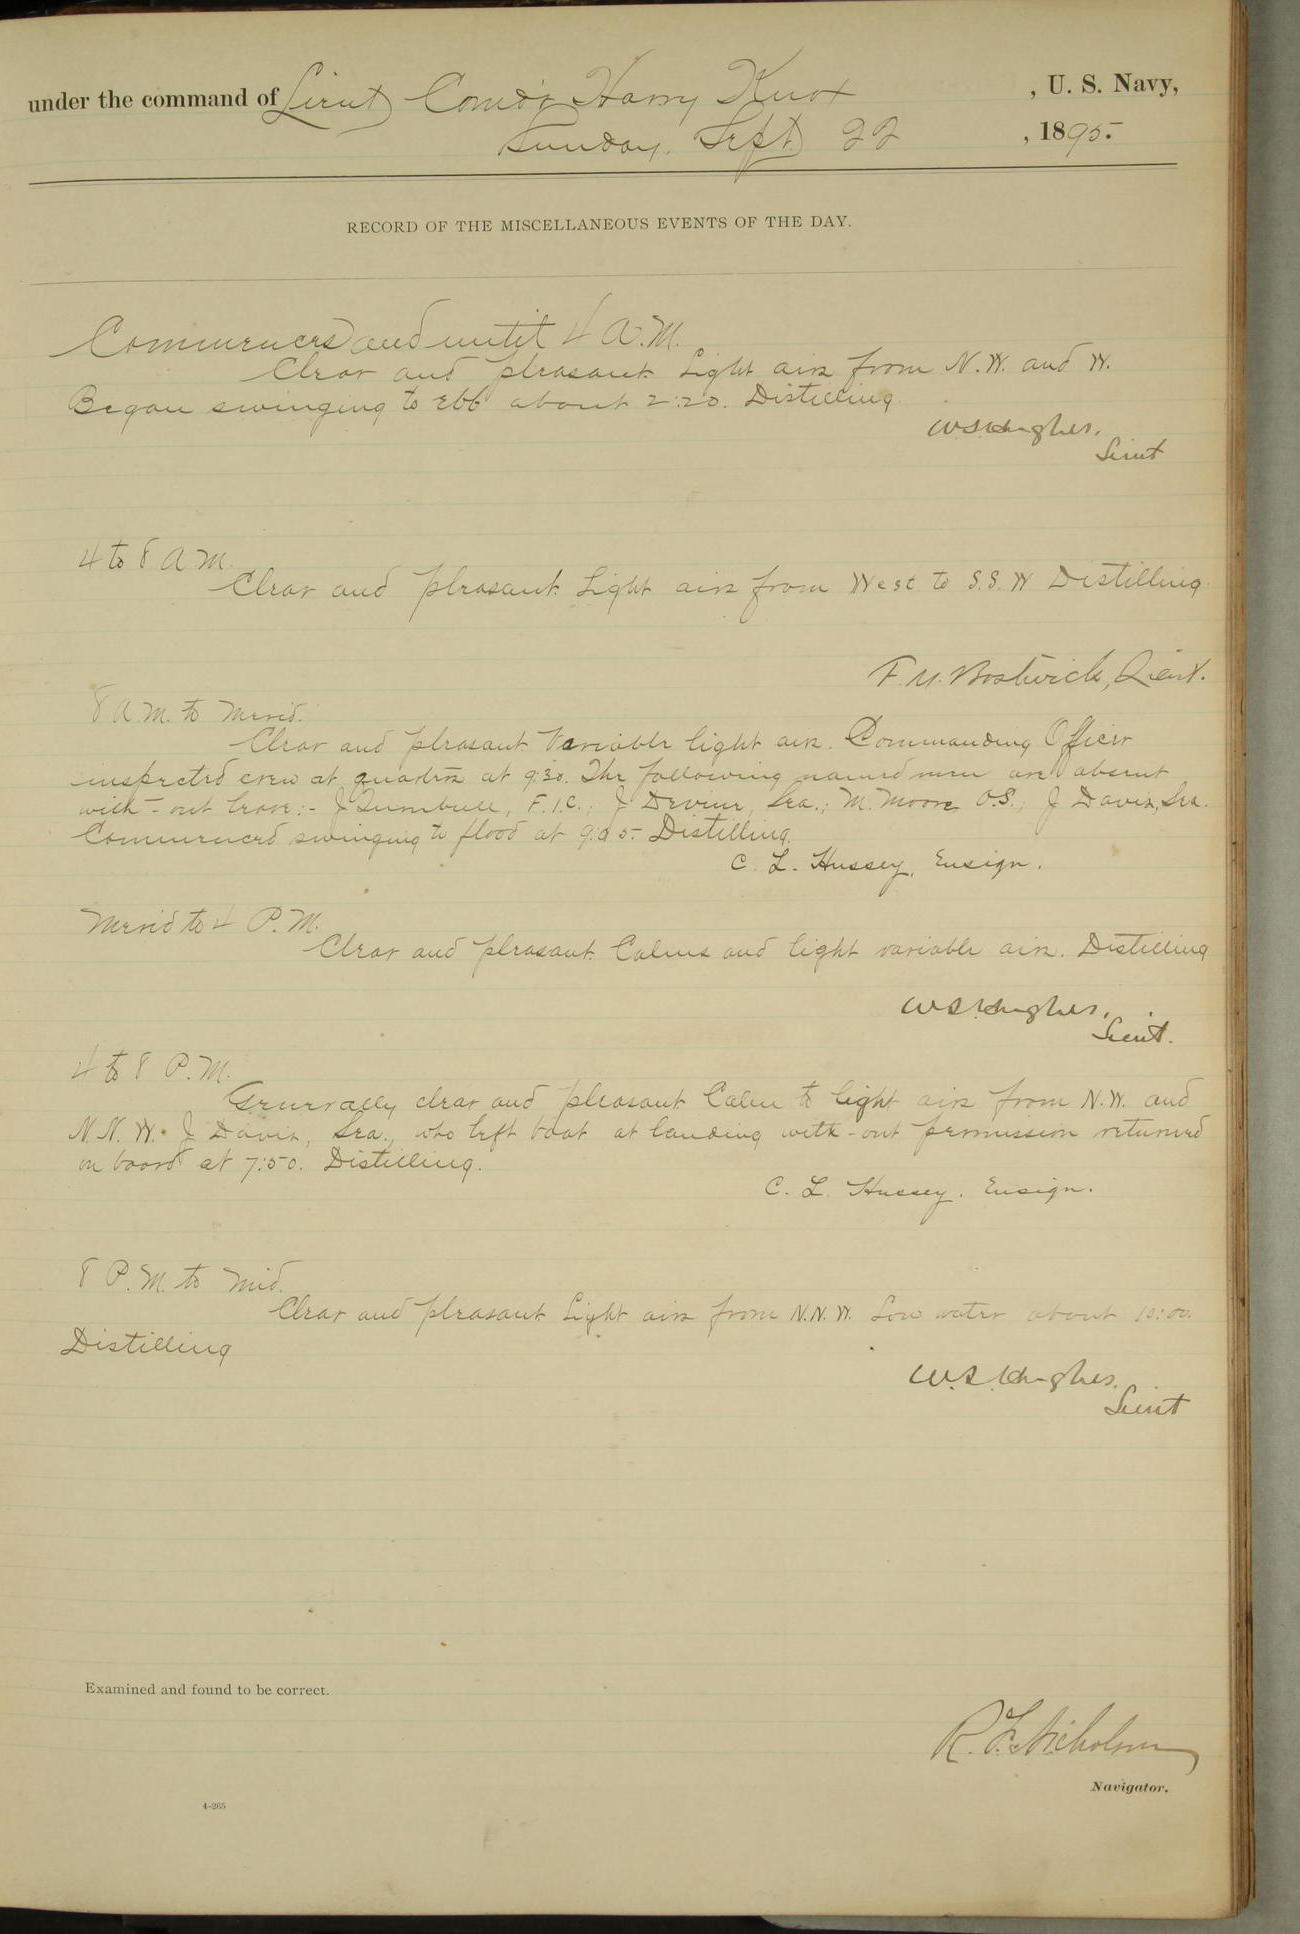 under the command of Lieut Comd'r Harry Knox , U. S. Navy,
Sunday. Sept 22 , 1895.
RECORD OF THE MISCELLANEOUS EVENTS OF THE DAY.
Commences and until 4 A.M.
Clear and pleasant. Light airs from N.W. and W.
Began swinging to ebb about 2:20. Distilling
W.S. Hughes.
Lieut
4 to 8 A M.
Clear and pleasant. Light airs from West to S.S.W Distilling
F. M. Bostwick, Lieut.
8 A M. to Merid.
Clear and pleasant. Variable light airs. Commanding Officer
inspected crew at quarters at 9:30. The following named men are absent
with-out leave:- J Turnbull, F.1.C.; J Devine, Sea.; M. Moore O.S.; J Davis, Sea.
Commenced swinging to flood at 9:05. Distilling.
C. L. Hussey, Ensign.
Merid to 4 P.M.
Clear and pleasant. Calms and light variable airs. Distilling
W S Hughes.
Lieut.
4 to 8 P.M.
Generally clear and pleasant Calm to light airs from N.W. and
N.N.W. J Davis, Sea., who left boat at landing with-out permission returned
on board at 7:50. Distilling.
C. L. Hussey. Ensign.
8 P.M. to Mid.
Clear and pleasant Light airs from N.N.W. Low water about 10:00.
Distilling
W.S. Hughes.
Lieut
Examined and found to be correct.
R. F. Nicholson
Navigator.
4-265